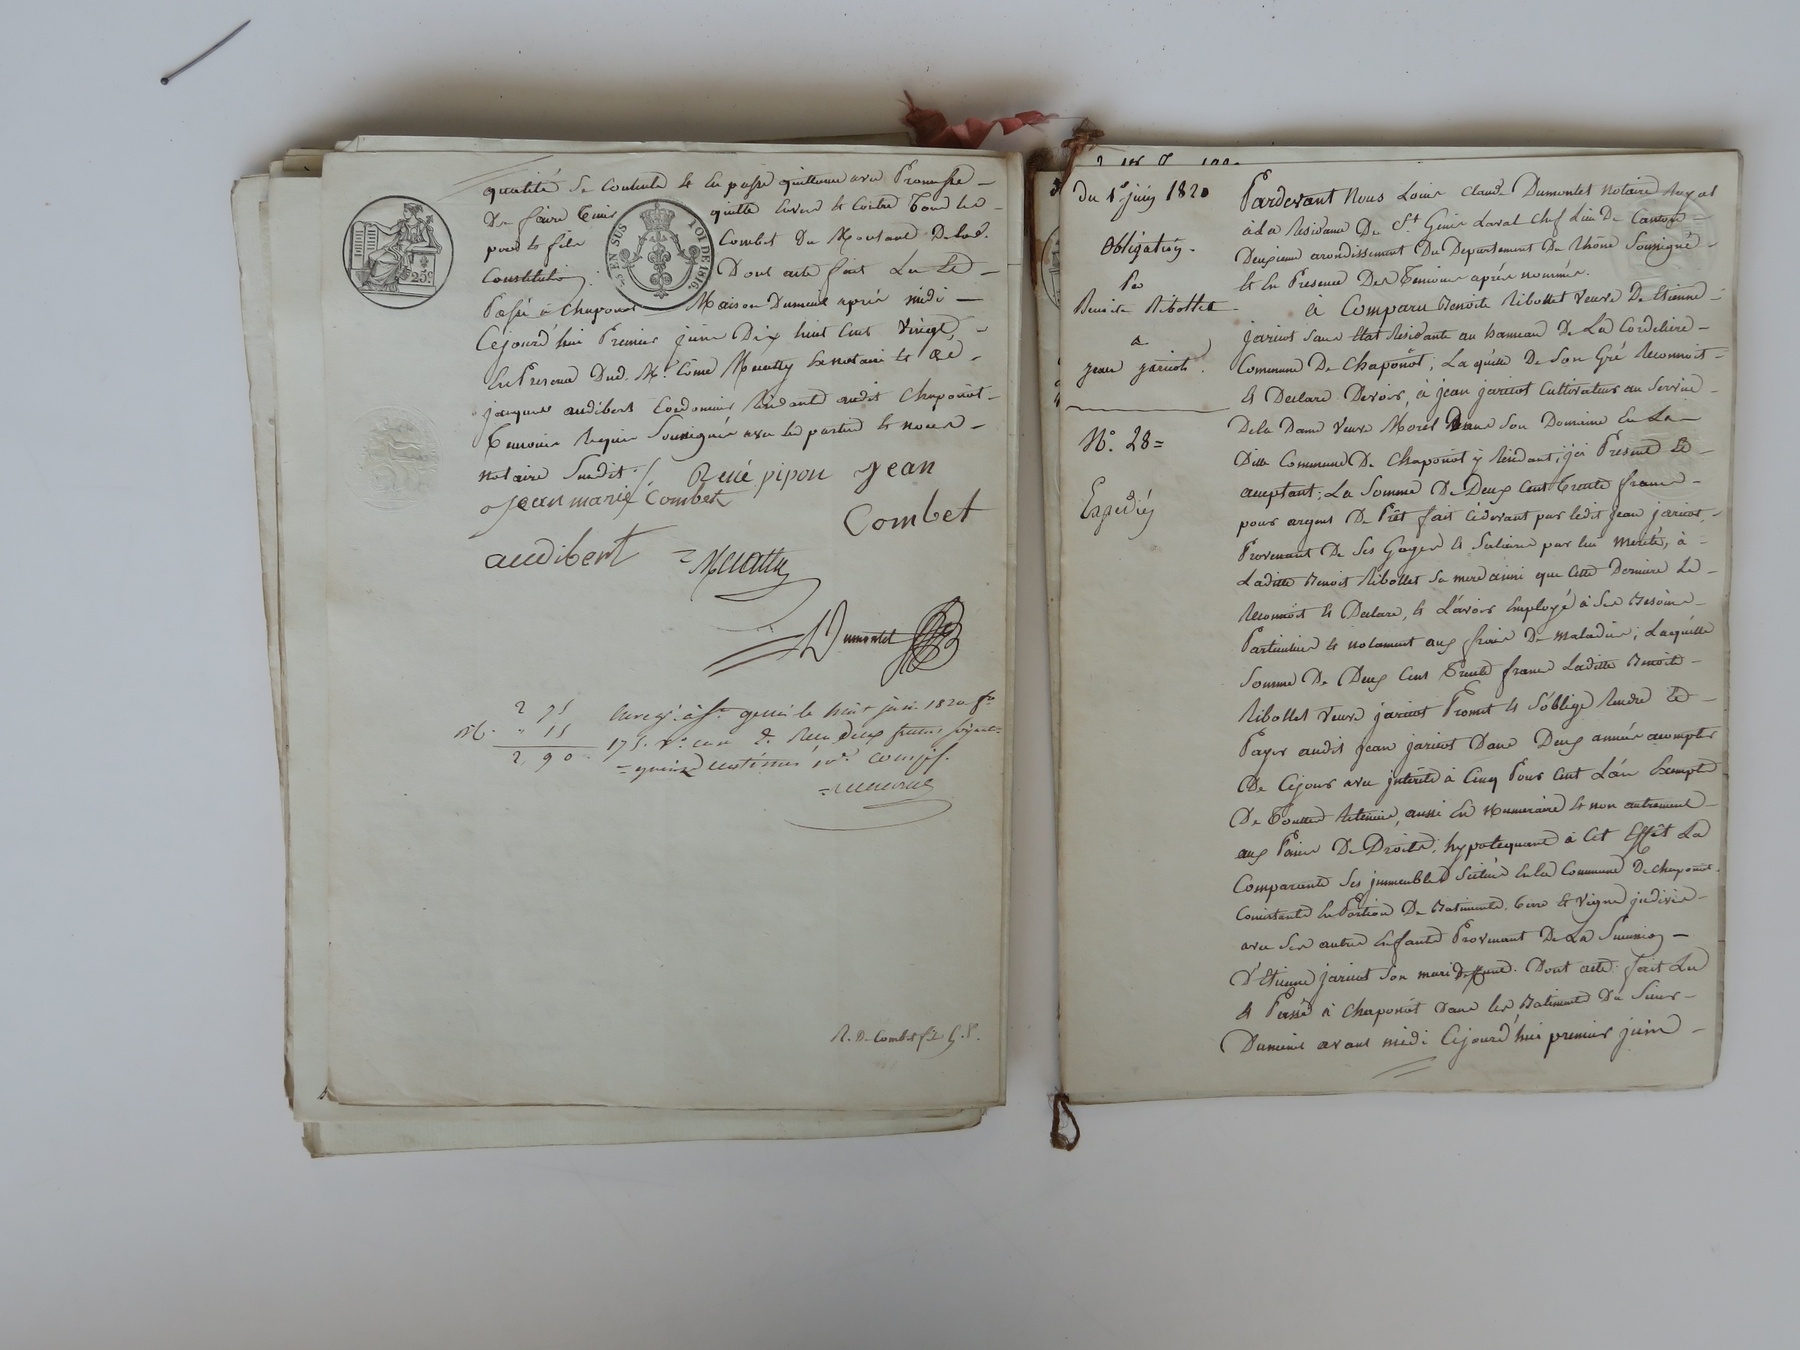 qualité se contente & en passe quittance avec Promesse –
De faire tenir quitte envers & contre tous les –
par le fils Combet du Montant Delad.
Constitution
Dont acte fait Lu Et –
Passé à Chaponost Maison Dumené après midi –
Cejourd'hui Premier juin Dix huit Cent Vingt, –
En Presence Dud. Me. Côme Meuatty Exnotaire & De –
jacques audibert Cordonnier Residants audit Chaponost –
Temoins Requis Soussignés avec les parties & nous –
notaire Susdit ./.
René pipon jean
jean marie Combet
Combet
audibert
Meuatty
Dumontet
2 75
" 15
2, 90
Enreg. à St. genis le huit juin 1820 fo.
175. Vo. case 2. Reçu Deux francs soixante
quinze centimes pr.
R. De Combet
25 EN SUS LOI DE 1816.
25c.
du 1er juin 1820
Obligation.
Pa
Benoite Ribollet
a
jean jaricot.
No. 28 =
Expedié
Pardevant Nous Louis Claude Dumontet Notaire Royal
à La Residence De St. Genis Laval Chef Lieu De Canton –
Deuxieme arondissement Du Departement Du Rhône Soussigné –
& En Presence Des Temoins après nommés.
à Comparu Benoite Ribollet Veuve De Etienne –
jaricot Sans Etat Residante au hameau De La Cordeliere –
Commune De Chaponôst, Laquelle De Son Gré Reconnoit –
& Declare Devoir, à jean jaricot Cultivateur au Service –
De la Dame Veuve Morel Dans Son Domaine En La –
Ditte Commune De Chaponôst y Residant, ici Present Et –
acceptant, La Somme De Deux Cent Trente francs –
pour argent De Prêt fait cidevant par ledit jean jaricot, –
Provenant De Ses Gages & Salaires par lui merités, à –
Laditte Benoit Ribollet Sa mere ainsi que Cette Derniere Le –
Reconnoit & Declare, & L'avoir Employé à Ses Besoins –
Particuliers & notament aux frais De maladies; Laquelle
Somme De Deux Cent Trente francs Laditte Benoite –
Ribollet Veuve jaricot Promet & S'oblige Rendre Et –
Payer audit jean jaricot Dans Deux années acompter
De Cejour avec interêts à Cinq Pour Cent L'an Exempts
De Toutes Retenues, aussi En Numeraire & non autrement –
aux Peines De Droits, hypotequant à Cet Effêt La
Comparante Ses immeubles Situés En la Commune De chaponost
Consistants En Portion De Batiments, terre & Vigne indivis –
avec Ses autres Enfants Provenant De La Succession –
D'Etienne jaricot Son mari Deffunt. Dont acte fait Lu
& Passé à Chaponôst Dans les Batiments Du Sieur –
Dumené avant midi Cejourd'hui premier juin –